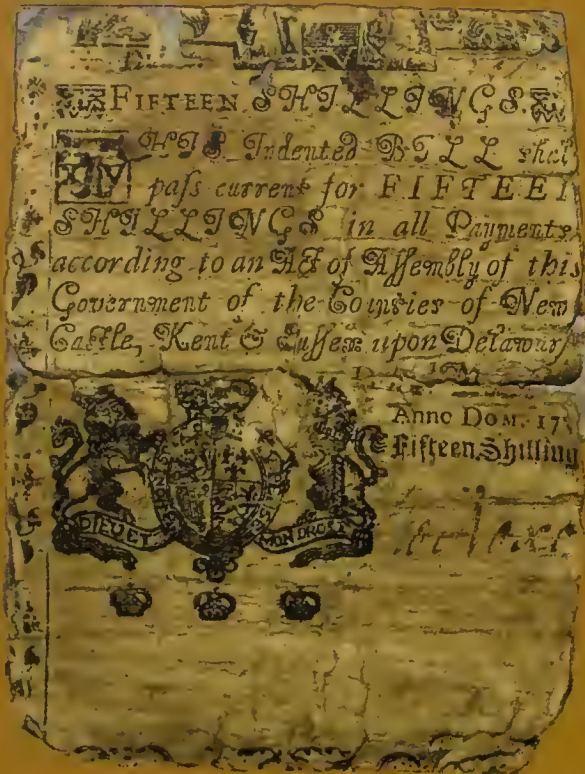 FIFTEEN SHILLINGS
THIS Indented BILL shal
pass current for FIFTEEN
SHILLINGS in all Payments
according to an Act of Assembly of this
Government of the Counties of New
Castle, Kent & Sussex upon Delawar
Anno Dom. 17
Fifteen Shilling
DIEU ET MON DROIT